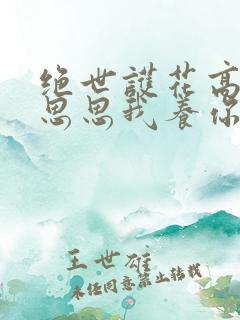 绝世護花高
思思我养你
王世雄
未经同意禁止转载